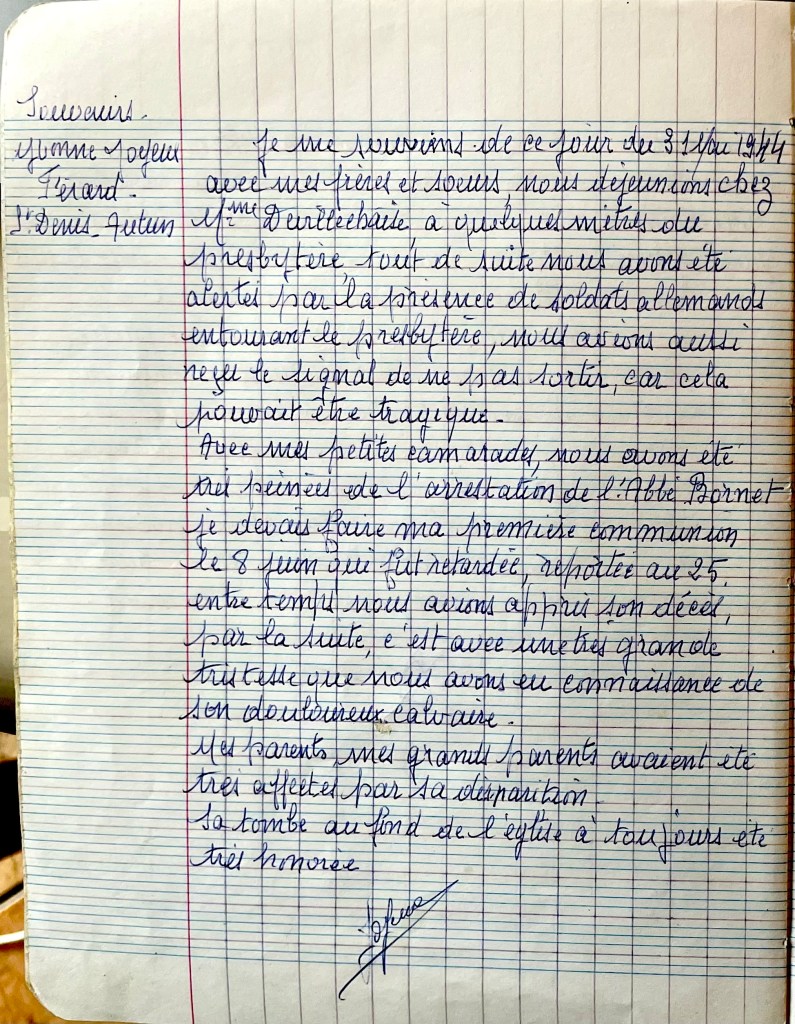 Souvenirs.
Yvonne Joyeux
Férard.
St. Denis - Autun
Je me souviens de ce jour du 31 Mai 1944
avec mes frères et soeurs, nous déjeunions chez
Mme à quelques mètres du
presbytère, tout de suite nous avons été
alertés par la présence de soldats allemands
entourant le presbytère, nous avions aussi
reçu le signal de ne pas sortir, car cela
pouvait être tragique.
Avec mes petites camarades, nous avons été
très peinées de l'arrestation de l'Abbé Bornet
je devais faire ma première communion
le 8 juin qui fut retardée, reportée au 25.
entre temps nous avions appris son décès,
par la suite, c'est avec une très grande
tristesse que nous avons eu connaissance de
son douloureux calvaire.
Mes parents, mes grands parents avaient été
très affectés par sa disparition.
Sa tombe au fond de l'église à toujours été
très honorée